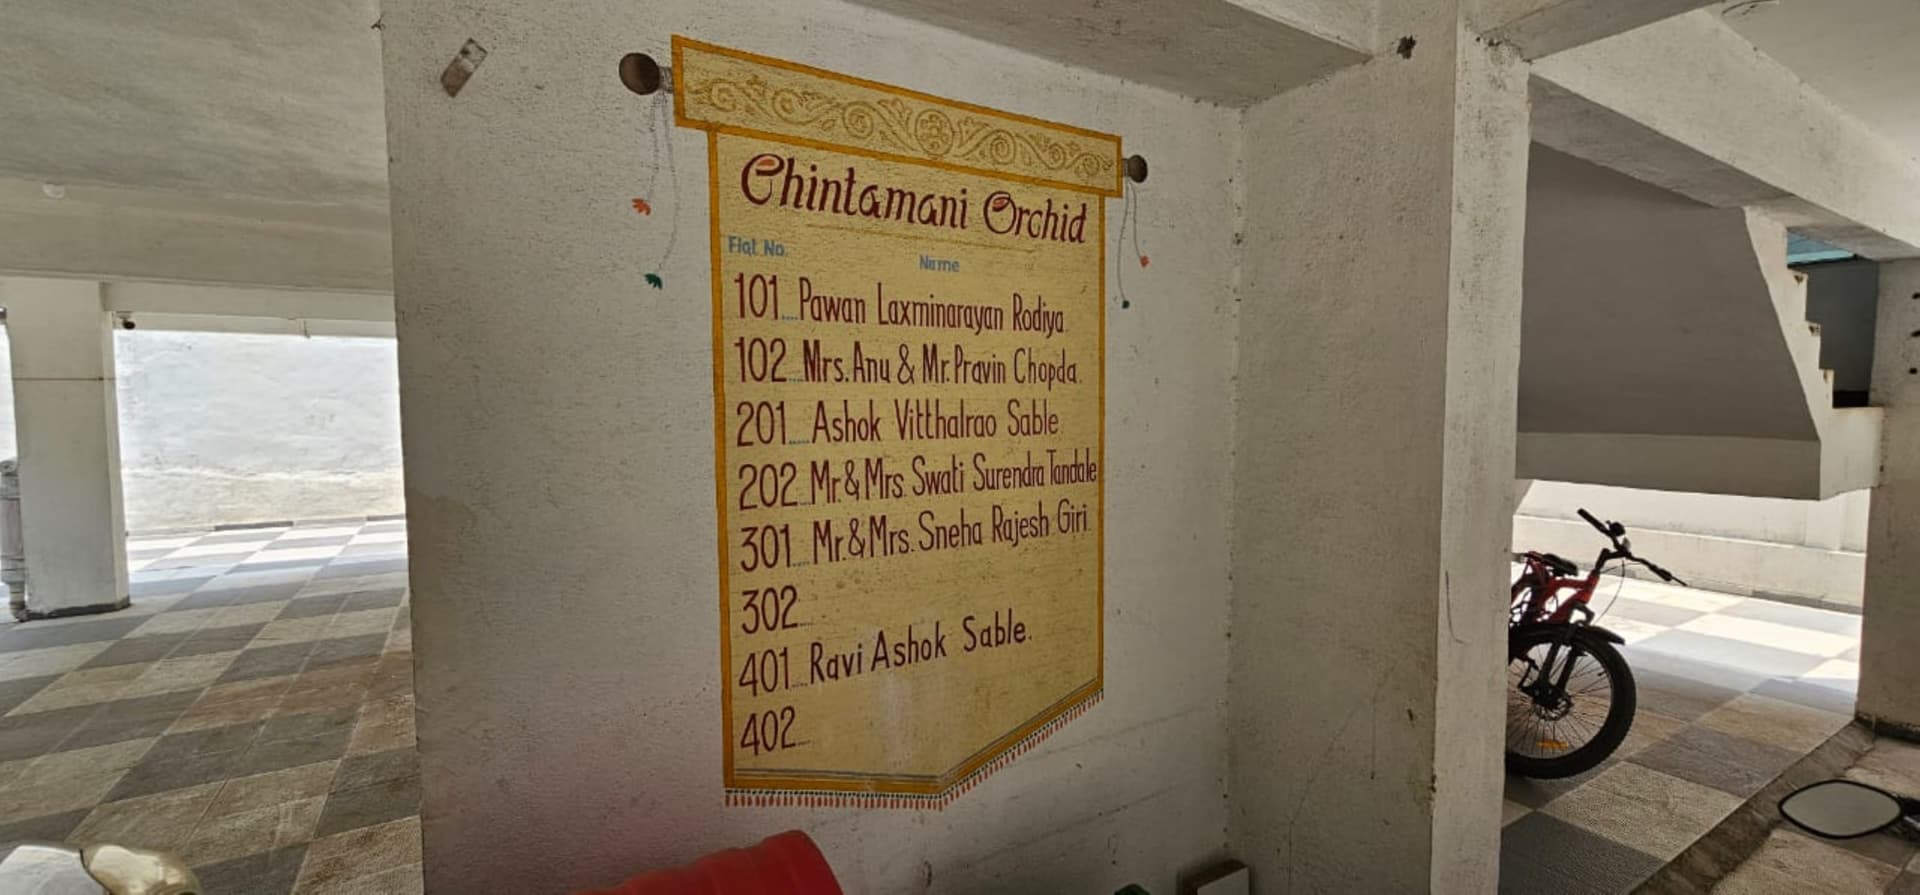 Chintamani Orchid
Flat No. Name
101....Pawan Laxminarayan Rodiya.
102....Mrs. Anu & Mr. Pravin Chopda.
201.....Ashok Vitthalrao Sable.
202....Mr. & Mrs. Swati Surendra Tandale
301.....Mr. & Mrs. Sneha Rajesh Giri.
302....
401.....Ravi Ashok Sable.
402....